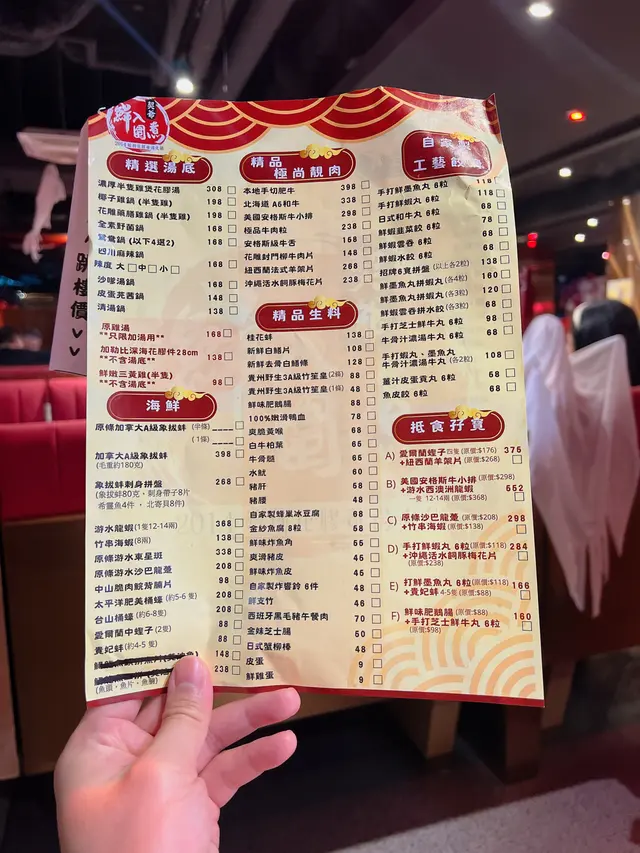 鮮入圍煮
精選湯底
濃厚半隻雞煲花膠湯 308
椰子雞鍋 (半隻雞) 198
花雕藥膳雞鍋 (半隻雞) 198
全素野菌鍋 168
鴛鴦鍋 (以下4選2) 168
四川麻辣鍋
辣度 大□中□小□ 168
沙嗲湯鍋 168
皮蛋芫茜鍋 148
清湯鍋 138
原雞湯
**只限加湯用** 168
加勒比深海花膠件28cm
**不含湯底** 138
鮮燉三黃雞(半隻)
**不含湯底** 98
海鮮
原條加拿大A級象拔蚌 (半條)
(1條)
加拿大A級象拔蚌 398
(毛重約180克)
象拔蚌刺身拼盤 268
(象拔蚌80克，刺身帶子8片
希靈魚4件，北寄貝8件)
游水龍蝦(1隻12-14兩) 368
竹串海蝦(8兩) 138
原條游水東星斑 338
原條游水沙巴龍躉 208
中山脆肉鯇背腩片 98
太平洋肥美桶蠔(約5-6隻) 208
台山桶蠔(約6-8隻) 208
愛爾蘭中蟶子(2隻) 88
貴妃蚌(約4-5隻) 88
148
238
(魚頭，魚片，魚腩)
精品
極尚靚肉
本地手切肥牛 398
北海道 A6和牛 338
美國安格斯牛小排 298
極品牛肉粒 238
安格斯級牛舌 168
花雕封門柳牛肉片 148
紐西蘭法式羊架片 268
沖繩活水飼豚梅花片 238
精品生料
桂花蚌 138
新鮮白鱔片 108
新鮮去骨白鱔條 128
貴州野生3A級竹笙皇(2條) 88
貴州野生3A級竹笙皇(1條) 48
鮮味肥鵝腸 88
100%嫩滑鴨血 78
爽脆黃喉 68
白牛柏葉 65
牛骨髓 65
水魷 60
豬肝 68
豬腰 48
自家製蜂巢冰豆腐 68
金紗魚腐 8粒 58
鮮味炸魚角 55
爽滑豬皮 46
鮮味炸魚皮 45
自家製炸響鈴 6件 48
鮮支竹 46
西班牙黑毛豬午餐肉 70
金妹芝士腸 50
日式蟹柳棒 48
皮蛋 9
鮮雞蛋 9
自家製
工藝餃丸
118
手打鮮墨魚丸 6粒 118
手打鮮蝦丸 6粒 68
日式和牛丸 6粒 78
鮮蝦韭菜餃 6粒 68
鮮蝦雲吞 6粒 68
鮮蝦水餃 6粒 68
招牌6寶拼盤 (以上各2粒) 138
鮮墨魚丸拼蝦丸(各4粒) 160
鮮墨魚丸拼鮮蝦丸(各3粒) 120
鮮蝦雲吞拼水餃(各3粒) 68
手打芝士鮮牛丸 6粒 98
牛骨汁濃湯牛丸 6粒 68
手打蝦丸、墨魚丸
牛骨汁濃湯牛丸(各2粒) 108
薑汁皮蛋貢丸 6粒 58
魚皮餃 6粒 68
抵食孖寶
A) 愛爾蘭蟶子四隻(原價:$176) 375
+紐西蘭羊架片(原價:$268)
B) 美國安格斯牛小排(原價:$298)
+游水西澳洲龍蝦 552
一隻 12-14兩(原價:$368)
C) 原條沙巴龍躉(原價:$208) 298
+竹串海蝦(原價:$138)
D) 手打鮮蝦丸 6粒(原價:$118) 284
+沖繩活水飼豚梅花片
(原價:$238)
E) 打鮮墨魚丸 6粒(原價:$118) 166
+貴妃蚌 4-5隻(原價:$88)
F) 鮮味肥鵝腸(原價:$88) 160
+手打芝士鮮牛丸 6粒
(原價:$98)